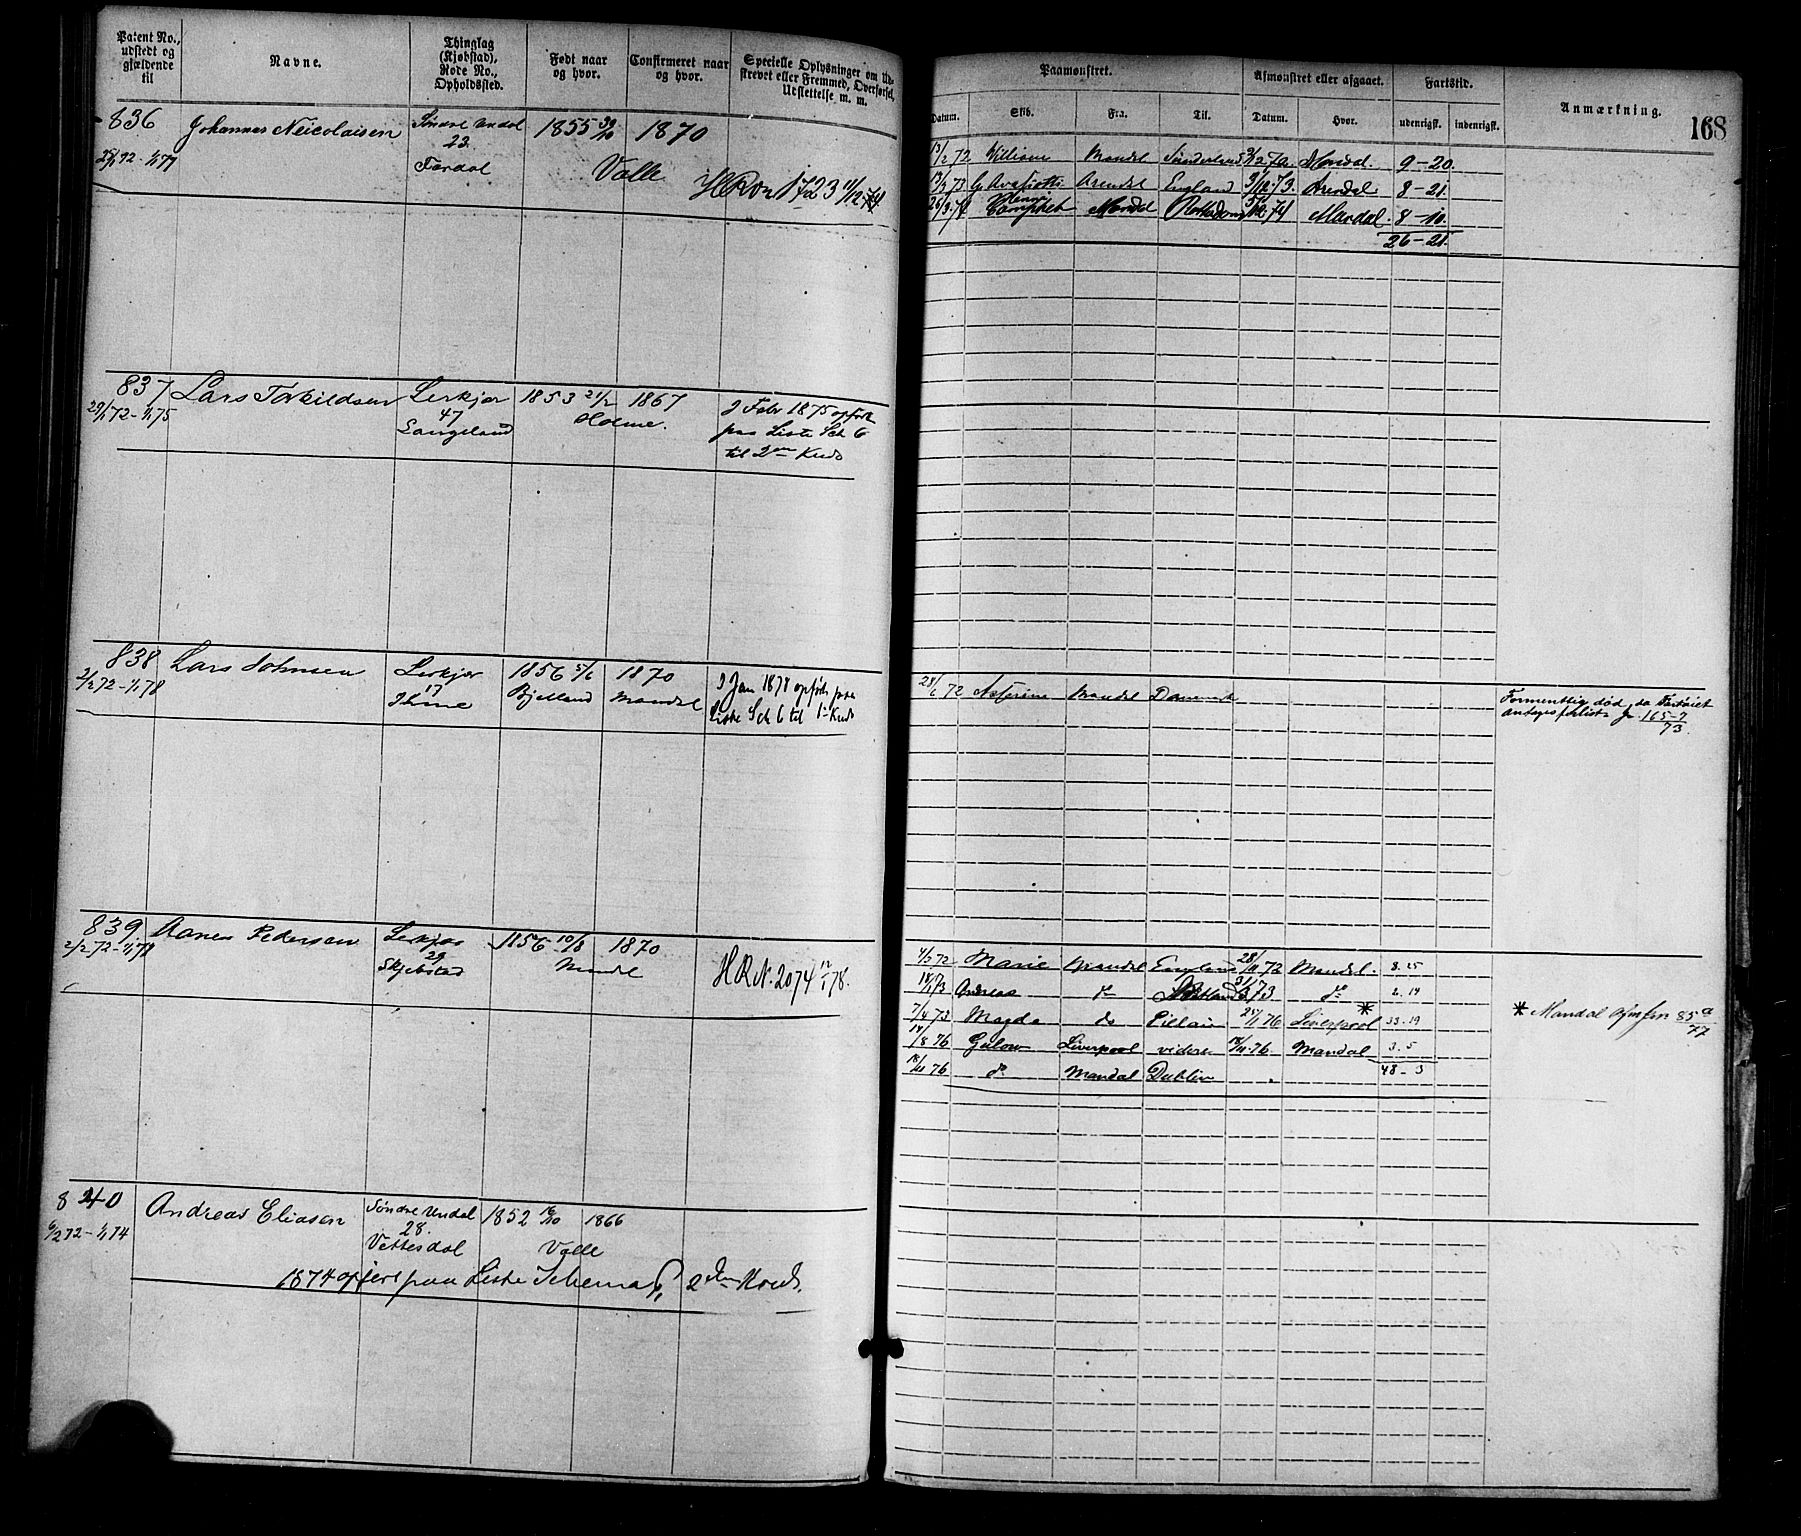 Patent No., udstedt og gjældende til
Navne.
Thinglag (Kjøbstad), Rode No., Opholdssted.
Født naar og hvor.
Confirmeret naar og hvor.
Specielle Oplysninger om Ud-
strevet eller Fremmed, Overførsel,
Udslettelse m. m.
Paamønstret.
Afmønstret eller afgaaet.
Fartstid.
Anmærkning.
168
Datum. Skib. Fra. Til. Datum. Hvor. udenrigsk. indenrigsk.
836 Johannes Neicolaisen Søndre Undal 1855 30/10 1870
23
Valle
HRON 1723
13/2 72 William Mandal Sunderland Mandal. 9-20.
Arendal England Arendal 8-21.
Mandal Rotterdam Mandal 8-10.
26-21.
837 Lars Torkildsen Lerkjær 1853 21/2 1867 2 Febr 1875 opført
29/1 72-1/1 75 47 Holme. paa Liste Sch 6
Langeland til 2den Kreds
838 Lars Johnsen Lerkjær 1856 5/6 1870 3 Jan 1878 opført paa
2/2 72-1/1 78 17 Bjelland Mandal Liste Sch 6 til 1ste Kreds
28/6 72 Mandal Danmark
Formentlig død, da Fartøiet
antages forlist. Jr 165-7
73.
839 Aanen Pedersen Lerkjær 1856 10/8 1870
2/2 72-1/1 78 29 Mandal HRN. 2074 12/1 78.
Skjebstad
4/2 72 Marie Mandal England 28/11 72 Mandal. 8.25
Andreas do 73 do 2.14
7/4 73 Magda do Pillau 76 Liverpool 33.19
* Mandal 85a
77
/8 76 Liverpool videre 18/11 76 Mandal 3.5
18/11 76 do Mandal Dublin 48-3
840 Andreas Eliasen Søndre Undal 1852 16/10 1866
6/2 72-1/1 74 28.
Vettesdal Valle
1874 opført paa Liste Schema 6, 2den Kreds.